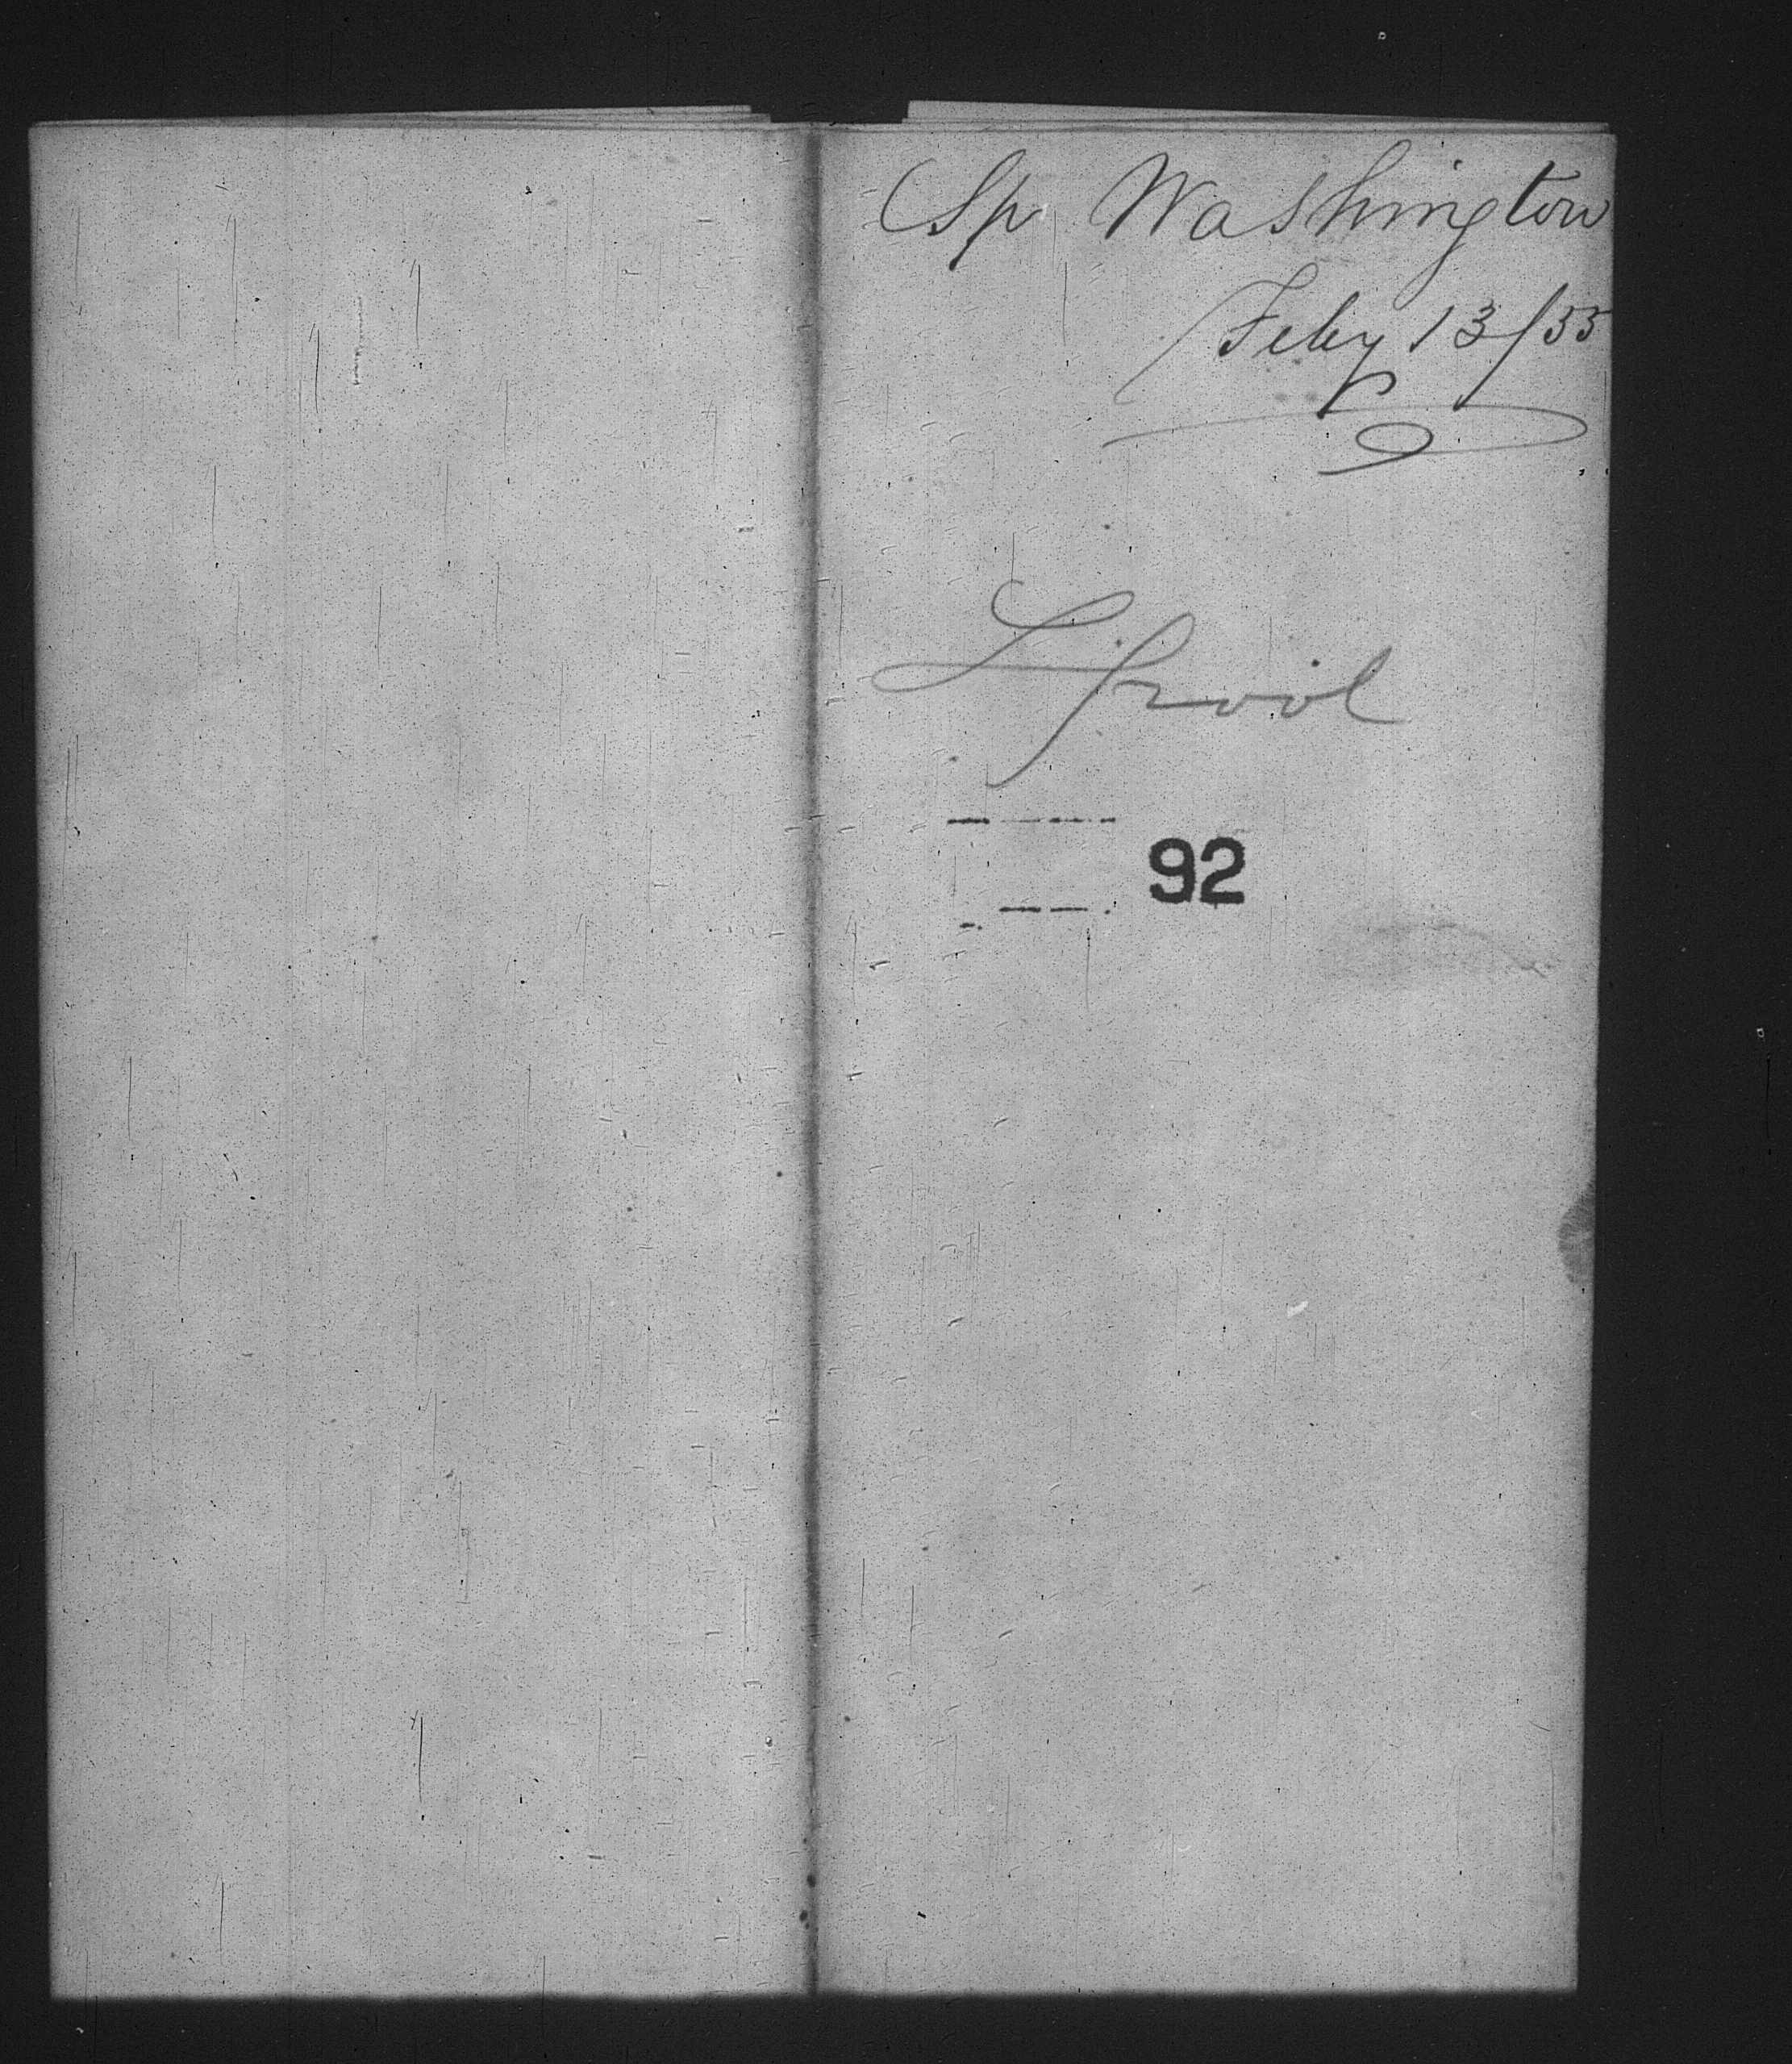 Sp Washington
Feby 13/55
L'pool
92